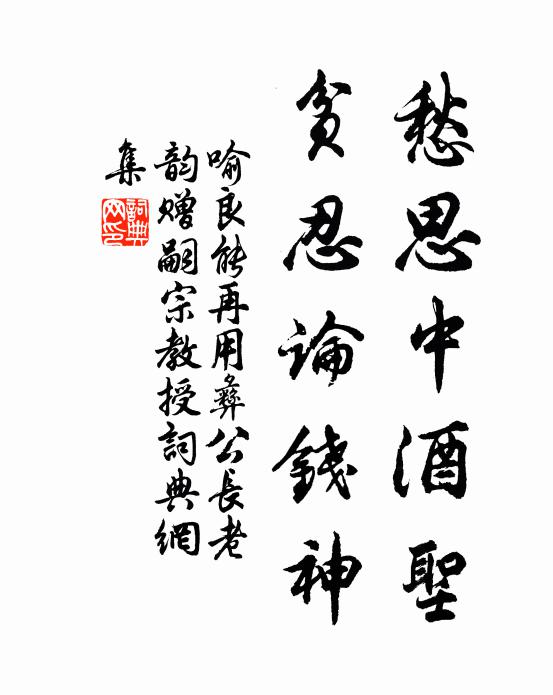 愁思中酒聖
貧忍論錢神
喻良能再用彝公長老
韵贈嗣宗教授詞典網
集
詞典
网印